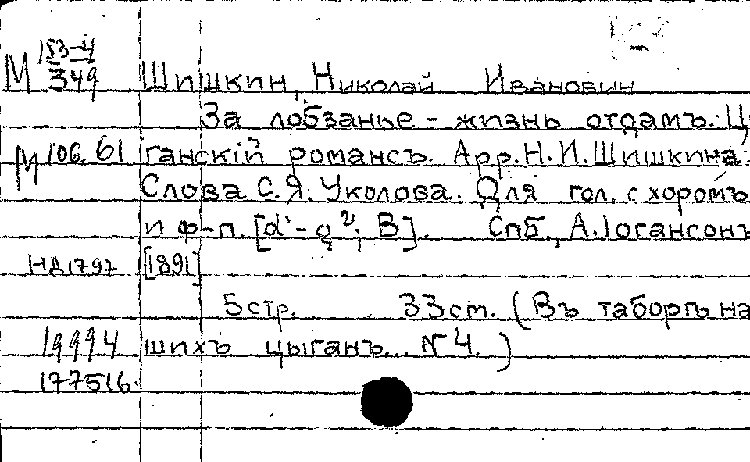 М 153-4/349 Шишкин, Николай Иванович
За лобзанье - жизнь отдамъ. Ц
М 106.61 ганскій романсъ. Арр. Н. И. Шишкина.
Слова С. Я. Уколова. Для гол. с хоромъ
и ф-п. [d'- g²; B]. Спб., А. Іогансонъ
НД1797 [1891]
5 стр. 33 см. (Въ таборѣ на
19994 шихъ цыганъ... № 4.)
177516.